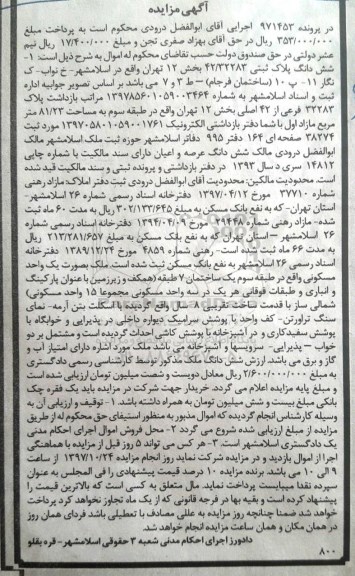 آگهی مزایده
در پرونده ۹۷۱۴۵۳ اجرایی آقای ابوالفضل درودی محکوم است به پرداخت مبلغ
۳۵۳/۰۰۰/۰۰۰ ریال در حق آقای بهزاد صفری تجن و مبلغ ۱۷/۴۰۰/۰۰۰ ریال نیم
عشر دولتی در حق صندوق دولت حسب تقاضای محکوم له اموال به شرح ذیل است: ۱-
شش دانگ پلاک ثبتی ۴۲/۳۳۲۸۳ بخش ۱۲ تهران واقع در اسلامشهر- خ نواب- ک
نگار ۱۱- پ ۱۰ (ساختمان فرجام) – ط ۳ و ۷ می باشد بر اساس تصویر جوابیه اداره
ثبت و اسناد اسلامشهر به شماره ۱۳۹۷۸۵۶۰۱۰۵۹۰۰۳۴۶۴ مراتب بازداشت پلاک
۳۳۲۸۳ فرعی از ۴۲ اصلی بخش ۱۲ تهران واقع در طبقه سوم به مساحت ۸۱/۲۳ متر
مربع مازاد اول با شما دفتر بازداشتی الکترونیک ۱۳۹۷۰۵۸۰۱۰۵۹۰۰۱۷۶۱ مورد ثبت
۳۸۲۷۴ صفحه ای ۱۶۴ دفتر ۹۹۵ دفاتر اسلامشهر حوزه ثبت ملک اسلامشهر مالک
ابوالفضل درودی مالک شش دانگ عرصه و اعیان دارای سند مالکیت با شماره چاپی
۱۴۸۱۲ سری د سال ۱۳۹۳ در دفتر بازداشتی و پرونده ثبتی و سند مالکیت قید شده
است. محدودیت مالکین: محدودیت آقای ابوالفضل درودی ثبت دفتر املاک: مازاد رهنی
شماره ۳۷۷۱۰ مورخ ۱۳۹۷/۰۴/۱۲ دفترخانه اسناد رسمی شماره ۲۶ اسلامشهر-
استان تهران- که به نفع بانک مسکن به مبلغ ۳۰۲/۱۳۳/۶۴۵ ریال به مدت ۶۰ ماه ثبت
شده- مازاد رهنی شماره ۱۹۴۴۸ مورخ ۱۳۹۴/۰۴/۰۹ دفترخانه اسناد رسمی شماره
۲۶ اسلامشهر – استان تهران که به نفع بانک مسکن به مبلغ ۲۱۳/۲۸۱/۶۵۷ ریال
به مدت ۶۶ ماه ثبت شده است- رهنی شماره ۴۸۵۹ مورخ ۱۳۸۹/۱۲/۲۴ دفتر خانه
اسناد رسمی ۲۶ اسلامشهر به نفع بانک مسکن ثبت شده است. ملک بصورت یک واحد
مسکونی واقع در طبقه سوم یک ساختمان ۷ طبقه (همکف و زیرزمین با عنوان پارکینگ
و انباری و طبقات فوقانی هر یک در سه واحد مسکونی مجموعا ۱۵ واحد مسکونی)
شمالی ساز با قدمت ساخت تقریبی ۸ سال واقع گردیده با اسکلت بتن آرمه- نمای
سنگ تراورتن- کف واحد با پوشش سرامیک دیواره داخلی در پذیرایی و خوابگاه با
پوشش سفیدکاری و در آشپزخانه با پوشش کاشی احداث گردیده است و مشتمل بر دو
خواب – پذیرایی- سرویسها و آشپزخانه می باشد ملک مورد اشاره دارای امتیاز آب و
گاز و برق می باشد. ارزش شش دانگ ملک مذکور توسط کارشناس رسمی دادگستری
به مبلغ ۲/۶۰۰/۰۰۰/۰۰۰ ریال معادل دویست و شصت میلیون تومان ارزیابی شده است
و مبلغ پایه مزایده اعلام می گردد. خریدار جهت شرکت در مزایده باید یک فقره چک
بانکی مبلغ بیست و شش میلیون تومان به همراه داشته باشد. ۱- توقیف و ارزیابی آن به
وسیله کارشناس انجام گردیده که اموال مذبور به منظور استیفای حق محکوم له از طریق
مزایده از مبلغ ارزیابی شده شروع می گردد ۲- محل فروش اموال اجرای احکام مدنی
یک دادگستری اسلامشهر است. ۳- هر کس می تواند ۵ روز قبل از مزایده با هماهنگی
اجرا از اموال بازدید و در مزایده شرکت نماید روز انجام مزایده ۱۳۹۷/۱۰/۲۴ از ساعت
۹ الی ۱۰ می باشد. برنده مزایده ۱۰ درصد قیمت پیشنهادی را فی المجلس به عنوان
سپرده نقدا میبایست پرداخت نماید. مال متعلق به کسی است که بالاترین قیمت را
پیشنهاد کرده است و بقیه بها در فرجه قانونی که از یک ماه تجاوز نخواهد کرد پرداخت
خواهد شد ضمنا چنانچه روز مزایده به عللی مصادف با تعطیلی باشد فردای همان روز
در همان مکان و همان ساعت مزایده انجام خواهد شد.
دادورز اجرای احکام مدنی شعبه ۳ حقوقی اسلامشهر- قره بقلو
۸۰۰